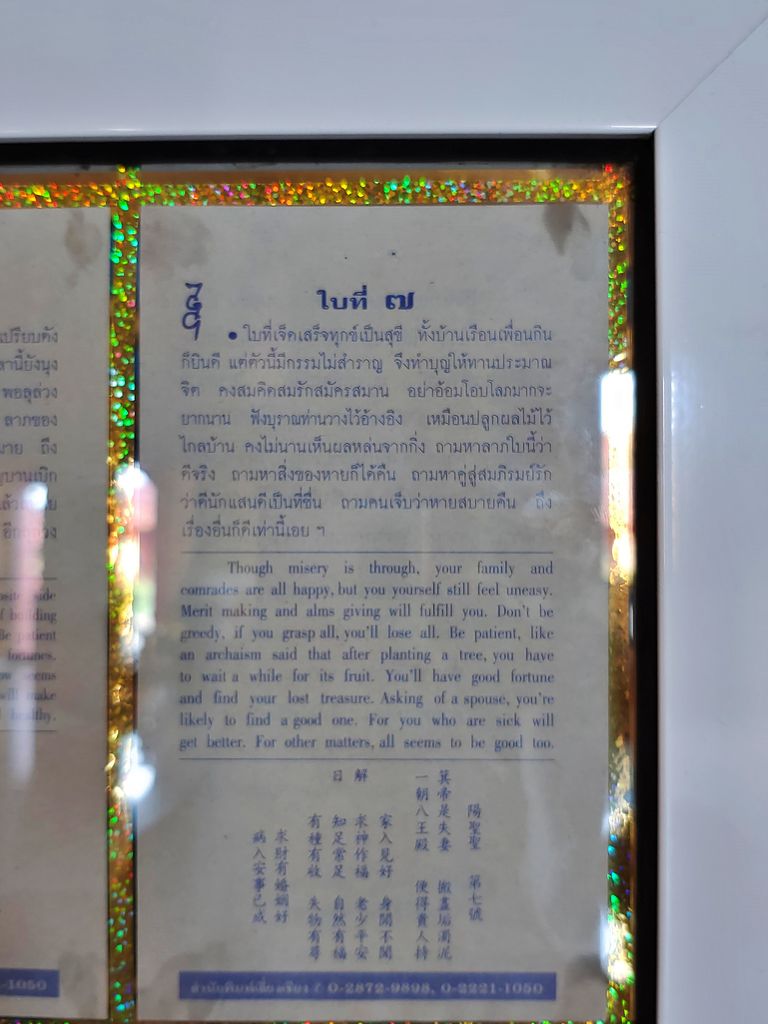 เปรียบดัง
ลานี้ยังนุง
พอลุล่วง
ลาภของ
ถึง
ญบานเบิก
side
f building
Be patient
fortunes.
seems
will make
healthy.
-1050
ใบที่ ๗
• ใบที่เจ็ดเสร็จทุกข์เป็นสุขี ทั้งบ้านเรือนเพื่อนกิน
ก็ยินดี แต่ตัวนี้มีกรรมไม่สำราญ จึงทำบุญให้ทานประมาณ
จิต คงสมคิดสมรักสมัครสมาน อย่าอ้อมโอบโลภมากจะ
ยากนาน ฟังบุราณท่านวางไว้อ้างอิง เหมือนปลูกผลไม้ไว้
ไกลบ้าน คงไม่นานเห็นผลหล่นจากกิ่ง ถามหาลาภใบนี้ว่า
ดีจริง ถามหาสิ่งของหายก็ได้คืน ถามหาคู่สู่สมภิรมย์รัก
ว่าดีนักแสนดีเป็นที่ชื่น ถามคนเจ็บว่าหายสบายคืน ถึง
เรื่องอื่นก็ดีเท่านี้เอย ฯ
Though misery is through, your family and
comrades are all happy, but you yourself still feel uneasy.
Merit making and alms giving will fulfill you. Don't be
greedy, if you grasp all, you'll lose all. Be patient, like
an archaism said that after planting a tree, you have
to wait a while for its fruit. You'll have good fortune
and find your lost treasure. Asking of a spouse, you're
likely to find a good one. For you who are sick will
get better. For other matters, all seems to be good too.
陽聖聖 第七號
箕帚是失妻 搬盡垢濁泥
一朝八王殿 便得貴人持
解曰
家人見好 身閒不閒
求神作福 老少平安
知足常足 自然有福
有種有收 失物有尋
求財有婚姻好
病人安事已成
สำนักพิมพ์เลี่ยงเซียง / 0-2872-9898, 0-2221-1050